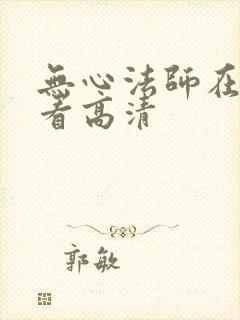 無心法師在
看高清
郭敏